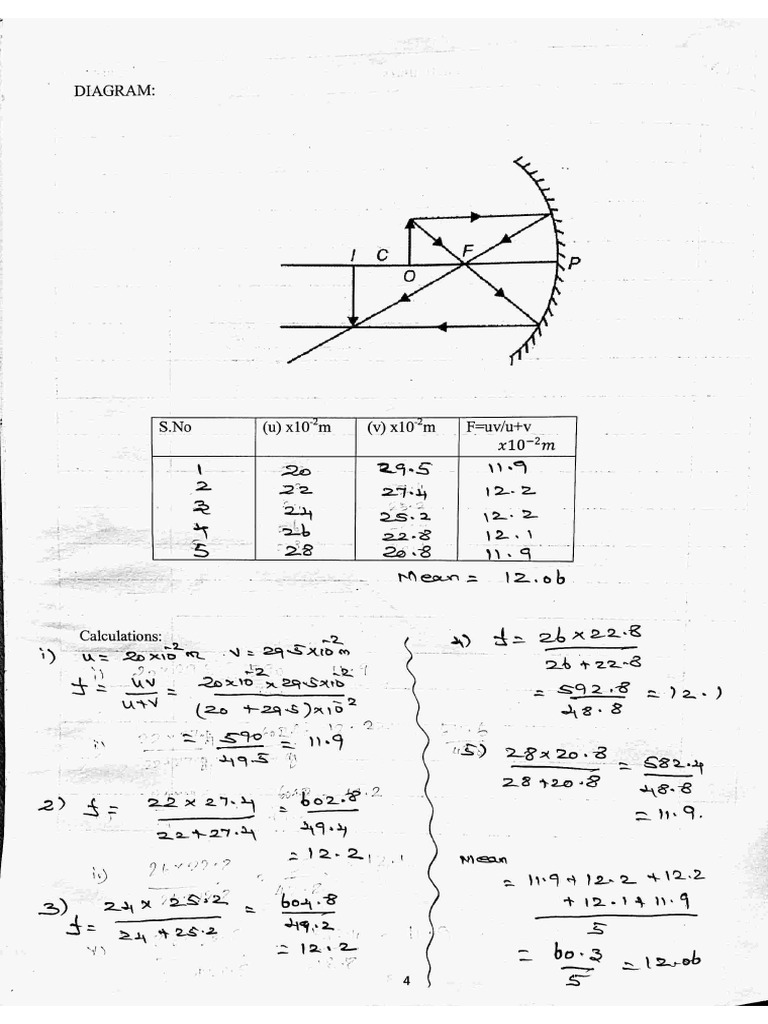 DIAGRAM:
I C F P
O
S.No (u) x10⁻²m (v) x10⁻²m F=uv/u+v x10⁻²m
1 20 29.5 11.9
2 22 27.4 12.2
3 24 25.2 12.2
4 26 22.8 12.1
5 28 20.8 11.9
Mean = 12.06
Calculations:
i) u = 20x10⁻² m v = 29.5x10⁻² m
f = uv/u+v = 20x10⁻² x 29.5x10⁻² / (20 + 29.5)x10⁻²
= 590/49.5 = 11.9
2) f = 22 x 27.4 / 22+27.4 = 602.8/49.4
= 12.2
3) f = 24 x 25.2 / 24 + 25.2 = 604.8/49.2
= 12.2
4) f = 26 x 22.8 / 26 + 22.8
= 592.8/48.8 = 12.1
5) 28 x 20.8 / 28 + 20.8 = 582.4/48.8
= 11.9.
Mean
= 11.9 + 12.2 + 12.2 + 12.1 + 11.9 / 5
= 60.3/5 = 12.06
4